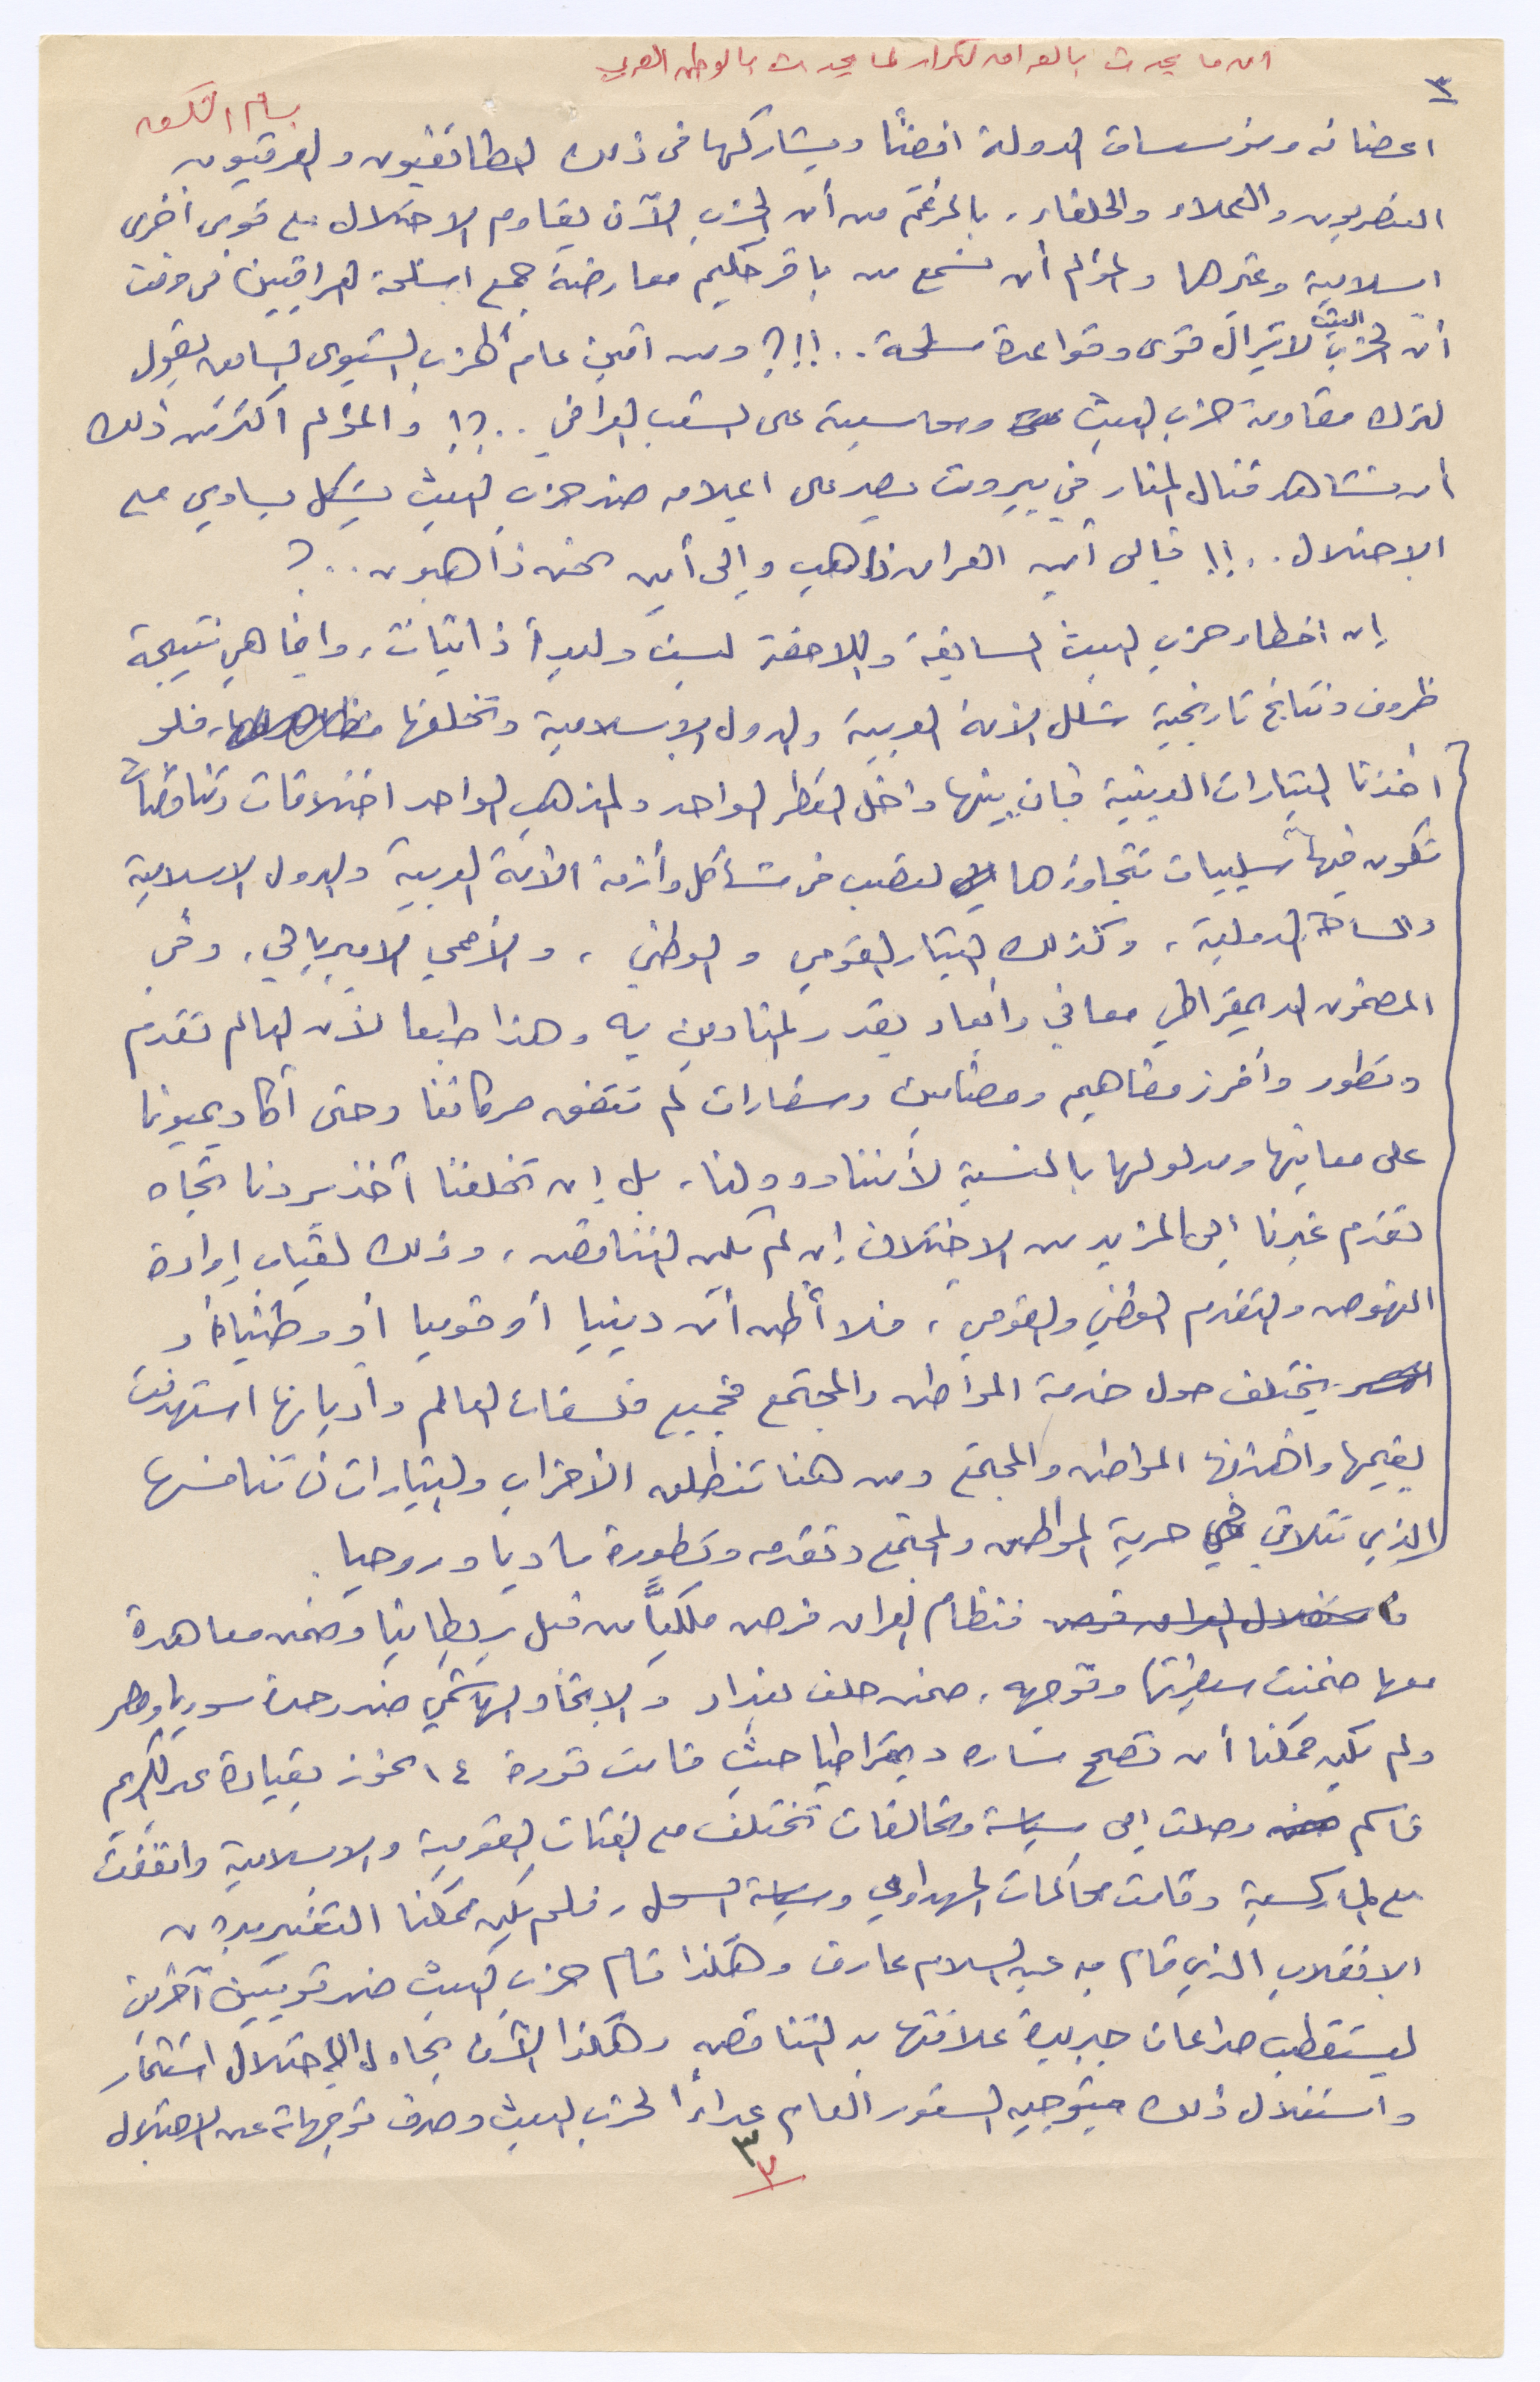 ان ما يحدث بالعراق تكرار لما يحدث بالوطن العربي
٣
بسام
اعضائه ومؤسسات الدولة ايضاً ويشاركها في ذلك الطائفيون والعرقيون
العنصريون والعملاء والحلفاء، بالرغم من أن الحزب الآن يقاوم الاحتلال مع قوى أخرى
اسلامية وغيرها والمؤلم أن نسمع من باقر حكيم معارضته جمع اسلحة العراقيين في وقت
أن لحزب البعث لا تزال قوى وقواعد مسلحة..!!؟ ومن امين عام الحزب الشيوعي السابق يقول
لترك مقاومة حزب البعث ومحاسبيه على الشعب العراقي..؟! والمؤلم أكثر من ذلك
أن نشاهد قنال المنار في بيروت يصير على اعلامه ضد حزب البعث بشكل يساوي مع
الاحتلال..!! فإلى أين العراق ذاهب وإلى أين نحن ذاهبون..؟
إن اخطاء حزب البعث السابقة واللاحقة ليست وليدة ذاتيات، وانما هي نتيجة
ظروف ونتائج تاريخية شلل الأمة العربية والدول الاسلامية وتخلفها، فلو
أخذنا التيارات الدينية فإن بينها داخل القطر الواحد والمذهب الواحد اختلافات وتناقضات
تكون فيها سلبيات تتجاوزها لتصب في مشاكل وأزمة الأمة العربية والدول الاسلامية
والساحة الدولية، وكذلك التيار القومي والوطني، والأممي الامبريالي، وفي
المضمون الديمقراطي معاني وأبعاد بقدر المنادين به وهذا طبعا لأن العالم تقدم
وتطور وأفرز مفاهيم ومضامين وشعارات لم تتفق حركاتنا وحتى أكاديميونا
على معانيها ومدلولها بالنسبة لأمتنا ودولنا، بل إن تخلفنا أخذ يردنا تجاه
تقدم غيرنا إلى المزيد من الاختلاف إن لم يكن التناقض، وذلك لغياب إرادة
النهوض والتقدم الوطني والقومي، فلا أظن أن دينيا أو قوميا أو وطنيا
يختلف حول خدمة المواطن والمجتمع فجميع فلسفات العالم وأديانها استهدفت
بقيمها واهدافها المواطن والمجتمع ومن هنا تنطلق الأحزاب والتيارات في تنافسها
الذي تتلاقى في حرية المواطن والمجتمع وتقدمه وتطوره ماديا وروحيا.
فنظام العراق فرض ملكياً من قبل بريطانيا وضمن معاهدة
معها ضمنت سيطرتها وتوجهه، ضمن حلف بغداد والاتحاد الهاشمي ضد وحدة سوريا ومصر
ولم يكن ممكنا أن تصحح مساره ديمقراطيا حيث قامت ثورة ١٤ تموز بقيادة عبد الكريم
قاسم وصلت إلى سياسة وتحالفات تختلف مع الفئات القومية والاسلامية واتفقت
مع الماركسية وقامت محاكمات المهداوي وسياسة السحل، فلم يكن ممكنا التغيير بدون
الانقلاب الذي قام به عبد السلام عارف وهكذا قام حزب البعث ضد قوميين آخرين
ليستقطب صراعات جديدة علاقتها بالتناقض وهكذا الآن يحاول الاحتلال استثمار
واستغلال ذلك بتوجيه الشعور العام عداءً لحزب البعث وصرف توجهاته عن الاحتلال
٣
٣